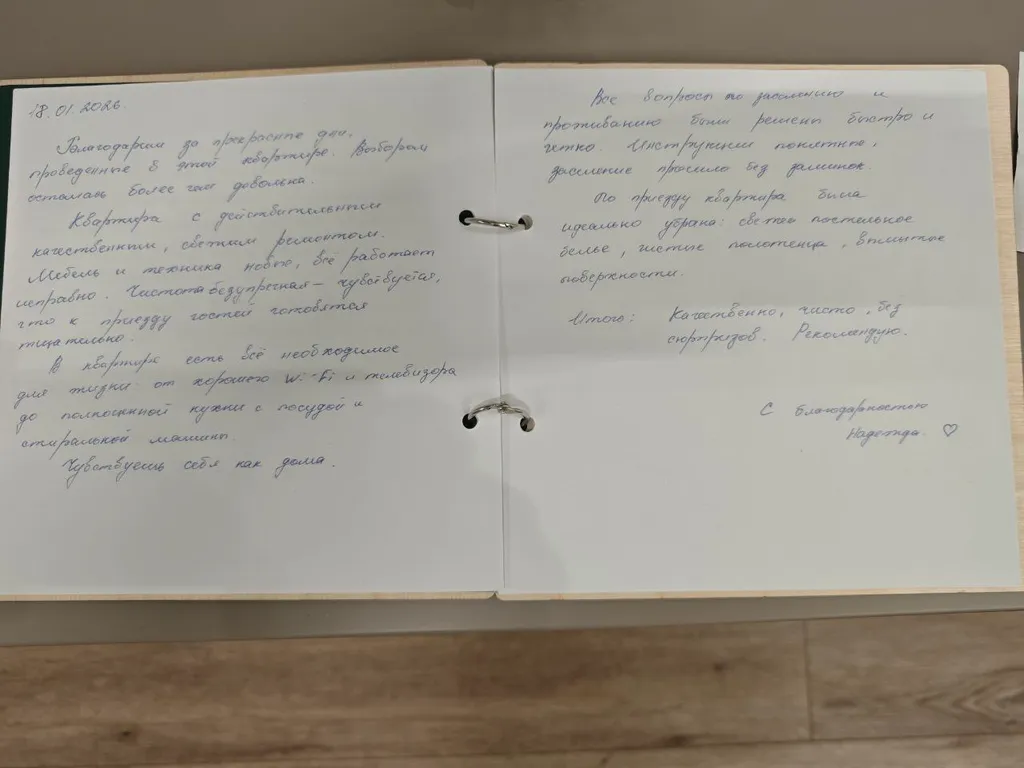 18.01.2026.
Благодарим за прекрасные дни,
проведенные в этой квартире. Выбором
остались более чем довольна.
Квартира с действительным
качественным, светлым ремонтом.
Мебель и техника новые, всё работает
исправно. Чистота безупречная – чувствуется,
что к приезду гостей готовятся
тщательно.
В квартире есть всё необходимое
для жизни: от хорошего Wi-Fi и телевизора
до полноценной кухни с посудой и
стиральной машины.
Чувствуешь себя как дома.
Все вопросы по заселению и
проживанию были решены быстро и
четко. Инструкции понятные,
заселение прошло без заминок.
По приезду квартира была
идеально убрана: свежее постельное
белье, чистые полотенца, вымытые
поверхности.
Итого: Качественно, чисто, без
сюрпризов. Рекомендую.
С благодарностью
Надежда. ♡